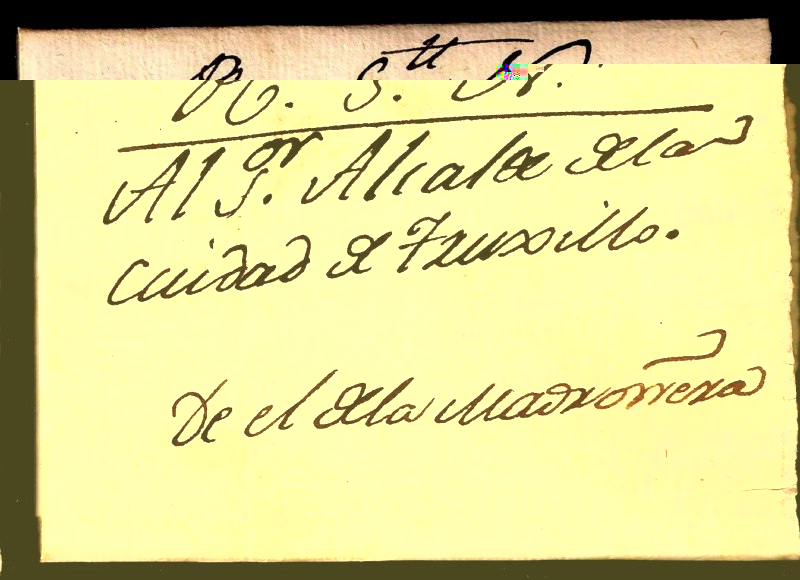 R. S.tt N.
Al S.or Alcalde dela
Cuidad de Truxillo.
De el dela Madroñera